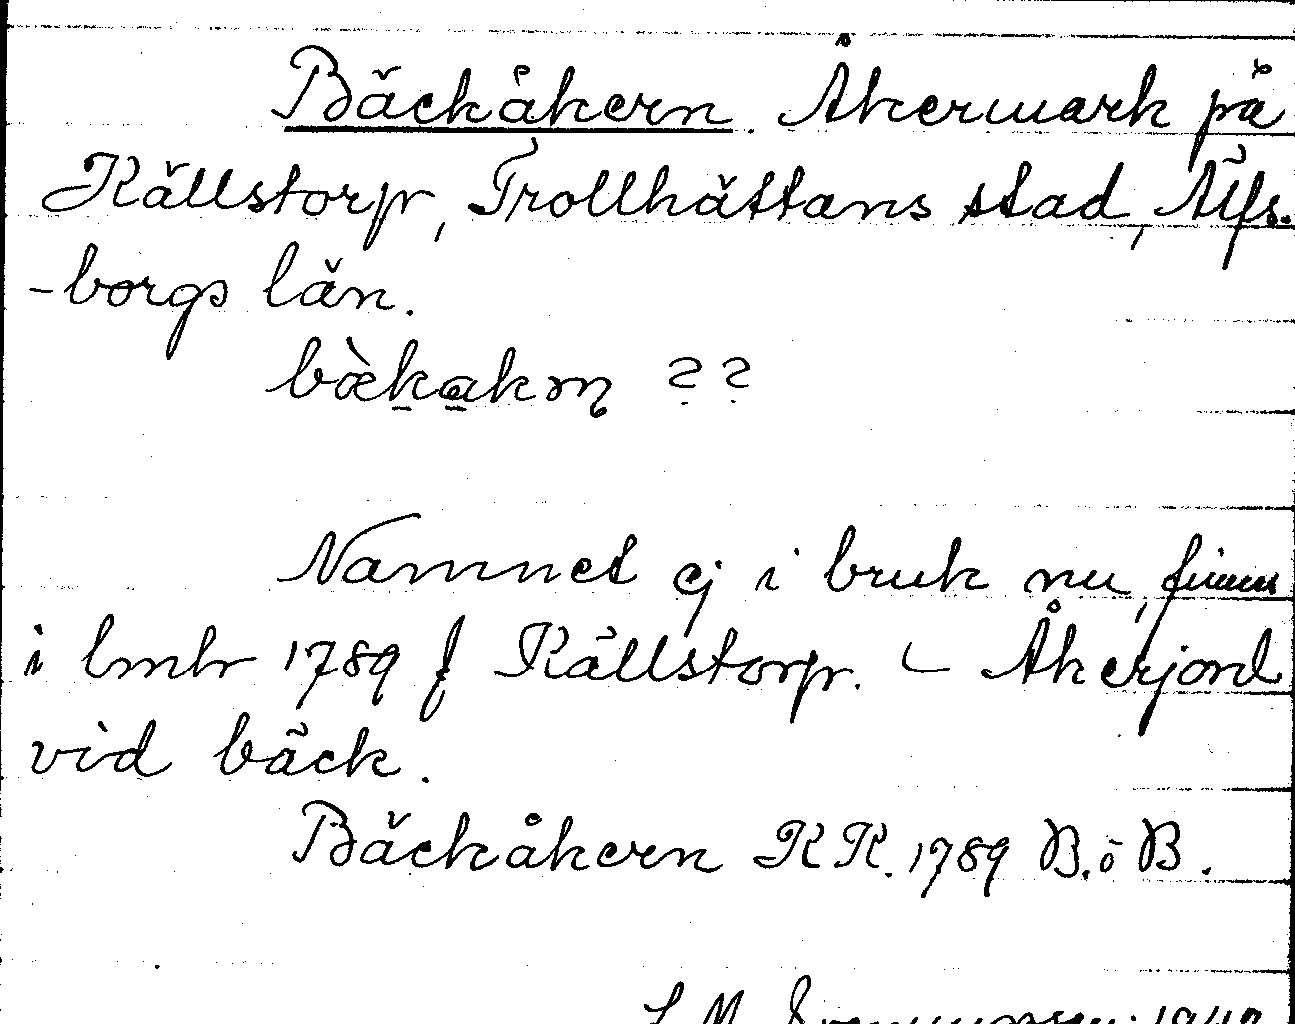 Bäckåkern. Åkermark på
Källstorp, Trollhättans stad, Älfs-
-borgs län.
bæ̀kakɷn̥ ??
Namnet ej i bruk nu, finns
i lmtr 1789 f Källstorp. – Åkerjord
vid bäck.
Bäckåkern KK. 1789 B.ö B.